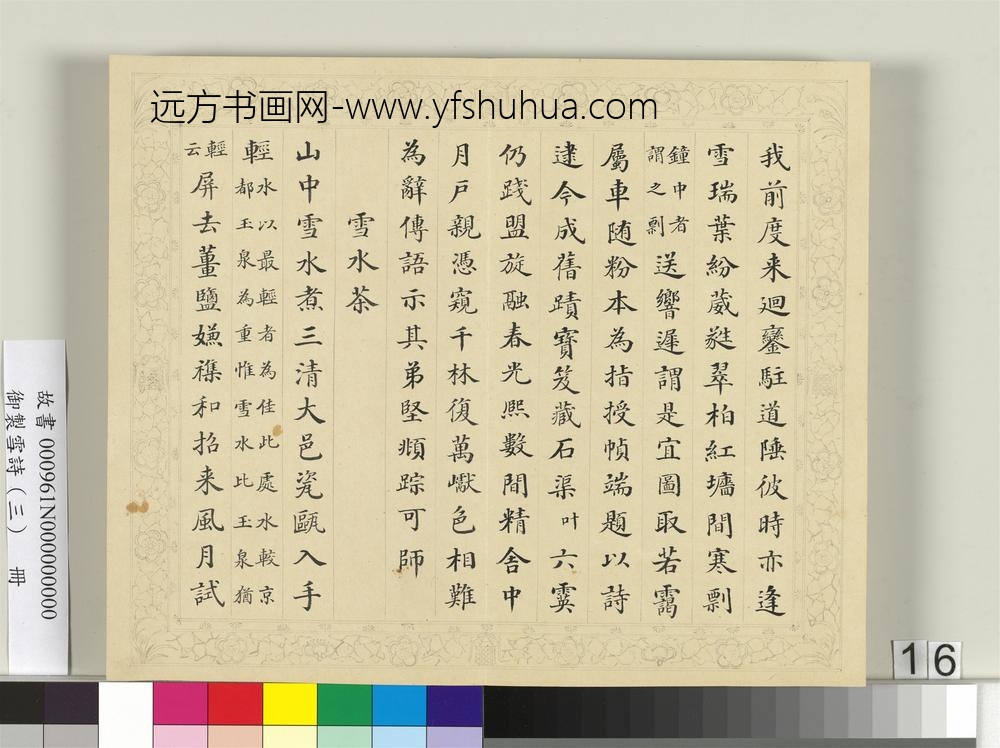 远方书画网-www.yfshuhua.com
我前度来迴鑾駐道陲彼時亦逢
雪瑞葉紛葳蕤翠柏紅墻間寒剽
鐘中者
謂之剽
送響遲謂是宜圖取若靄
屬車随粉本為指授幀端題以詩
逮今成舊蹟寶笈藏石渠叶六霙
仍踐盟旋融春光熙數間精舍中
月戸親憑窺千林復萬巘色相難
為辭傳語示其弟堅頫踪可師
雪水茶
山中雪水煮三清大邑瓷甌入手
輕
水以最輕者為佳此處水較京
都玉泉為重惟雪水比玉泉猶
輕
云
屏去薑鹽嫌襍和招来風月試
故書 000961N000000000
御製雪詩(三) 冊
16